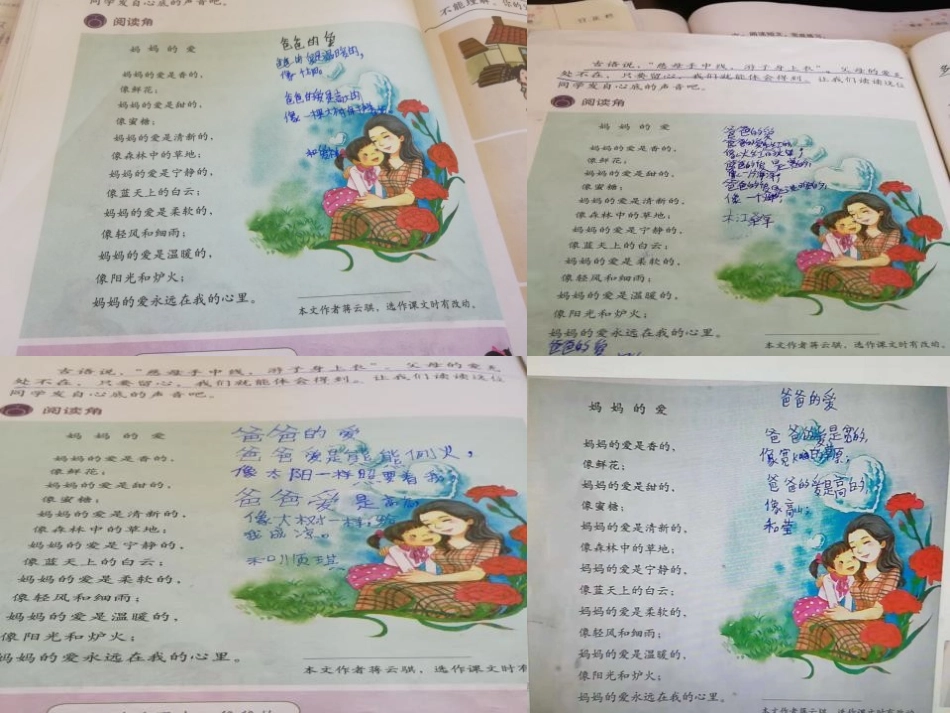 同学发自心底的声音吧。
阅读角
妈妈的爱
妈妈的爱是香的，
像鲜花；
妈妈的爱是甜的，
像蜜糖；
妈妈的爱是清新的，
像森林中的草地；
妈妈的爱是宁静的，
像蓝天上的白云；
妈妈的爱是柔软的，
像轻风和细雨；
妈妈的爱是温暖的，
像阳光和炉火；
妈妈的爱永远在我的心里。
本文作者蒋云骐，选作课文时有改动。
爸爸的爱
爸爸的爱是高大的，
像一棵大树
不能理解
古语说，“慈母手中线，游子身上衣”，父母的爱无
处不在，只要留心，我们就能体会得到。让我们读读这位
同学发自心底的声音吧。
阅读角
妈妈的爱
妈妈的爱是香的，
像鲜花；
妈妈的爱是甜的，
像蜜糖；
妈妈的爱是清新的，
像森林中的草地；
妈妈的爱是宁静的，
像蓝天上的白云；
妈妈的爱是柔软的，
像轻风和细雨；
妈妈的爱是温暖的，
像阳光和炉火；
妈妈的爱永远在我的心里。
本文作者蒋云骐，选作课文时有改动。
爸爸的爱
爸爸的爱
古语说，“慈母手中线，游子身上衣”，父母的爱无
处不在，只要留心，我们就能体会得到。让我们读读这位
同学发自心底的声音吧。
阅读角
妈妈的爱
妈妈的爱是香的，
像鲜花；
妈妈的爱是甜的，
像蜜糖；
妈妈的爱是清新的，
像森林中的草地；
妈妈的爱是宁静的，
像蓝天上的白云；
妈妈的爱是柔软的，
像轻风和细雨；
妈妈的爱是温暖的，
像阳光和炉火；
妈妈的爱永远在我的心里。
本文作者蒋云骐，选作课文时有
爸爸的爱
爸爸爱是熊熊的火，
像太阳一样照耀着我
爸爸爱是高
像大树一样
妈妈的爱
妈妈的爱是香的，
像鲜花；
妈妈的爱是甜的，
像蜜糖；
妈妈的爱是清新的，
像森林中的草地；
妈妈的爱是宁静的，
像蓝天上的白云；
妈妈的爱是柔软的，
像轻风和细雨；
妈妈的爱是温暖的，
像阳光和炉火；
妈妈的爱永远在我的心里。
本文作者蒋云骐，选作课文时有改动。
爸爸的爱
爸爸的爱是宽的，
像宽大的草原；
爸爸的爱是高的，
像高山；